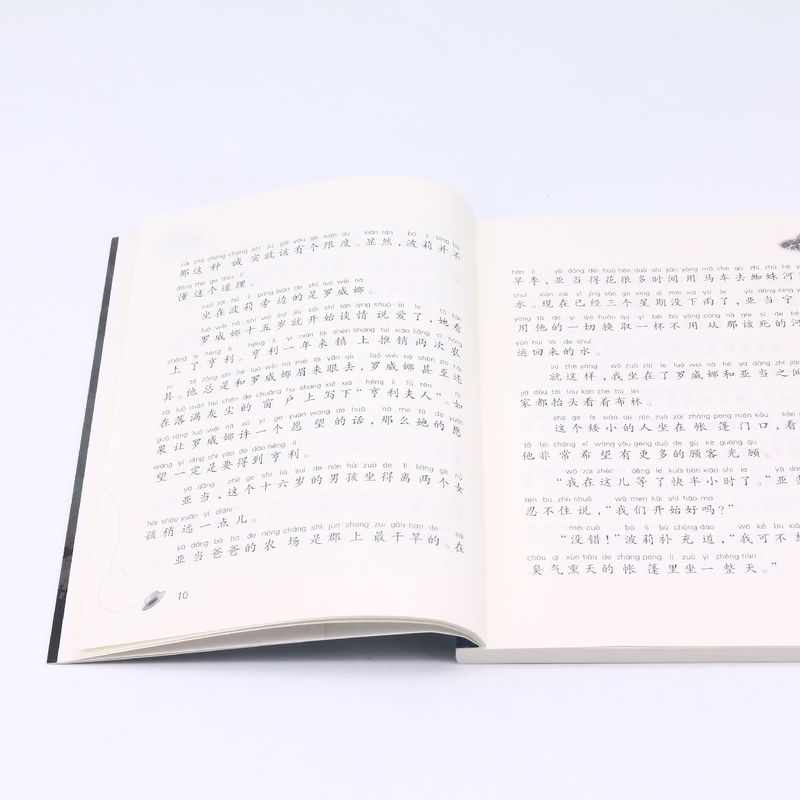 nà zhè zhǒng chéng shí jiù gāi yǒu gè xiàn dù xiǎn rán bō lì bìng bù
那这种诚实就该有个限度。显然，波莉并不
dǒng zhè gè dào lǐ
懂这个道理。
zuò zài bō lì páng biān de shì luó wēi nà
坐在波莉旁边的是罗威娜。
luó wēi nà shí wǔ suì jiù kāi shǐ tán qíng shuō ài le tā kàn
罗威娜十五岁就开始谈情说爱了，她看
shàng le hēng lì hēng lì yì nián lái zhèn shang tuī xiāo liǎng cì nóng
上了亨利。亨利一年来镇上推销两次农
jù tā zǒng shì hé luó wēi nà méi lái yǎn qù luó wēi nà shèn zhì hái
具。他总是和罗威娜眉来眼去，罗威娜甚至还
zài luò mǎn huī chén de chuāng hu shang xiě xià hēng lì fū rén rú
在落满灰尘的窗户上写下“亨利夫人”。如
guǒ ràng luó wēi nà xǔ yí gè yuàn wàng de huà nà me tā de yuàn
果让罗威娜许一个愿望的话，那么她的愿
wàng yí dìng shì yào dé dào hēng lì
望一定是要得到亨利。
yà dāng zhè ge shí liù suì de nán hái zuò de lí liǎng gè nǚ
亚当，这个十六岁的男孩坐得离两个女
hái shāo yuǎn yì diǎnr
孩稍远一点儿。
yà dāng bà ba de nóng chǎng shì jùn shang zuì gān hàn de zài
亚当爸爸的农场是郡上最干旱的。在
10
hàn jì yà dāng děi huā hěn duō shí jiān yòng mǎ chē qù zhī zhū hé
旱季，亚当得花很多时间用马车去蜘蛛河
shuǐ xiàn zài yǐ jīng sān gè xīng qī méi xià yǔ le yà dāng nìng
水。现在已经三个星期没下雨了，亚当宁
yòng tā de yí qiè huàn qǔ yì bēi bú yòng cóng nà gāi sǐ de hé
用他的一切换取一杯不用从那该死的河
yùn huí lái de shuǐ
运回来的水。
jiù zhè yàng wǒ zuò zài le luó wēi nà hé yà dāng zhī jiān
就这样，我坐在了罗威娜和亚当之间
jiā dōu tái tóu kàn zhe bù lín
家都抬头看看布林。
zhè ge ǎi xiǎo de rén zuò zài zhàng peng mén kǒu kàn
这个矮小的人坐在帐篷门口，看
tā fēi cháng xī wàng yǒu gèng duō de gù kè guāng gù
他非常希望有更多的顾客光顾。
wǒ zài zhèr děng le kuài bàn xiǎo shí le yà
“我在这儿等了快半小时了。”亚当
rěn bú zhù shuō wǒ men kāi shǐ hǎo ma
忍不住说，“我们开始好吗？”
méi cuò bō lì bǔ chōng dào wǒ kě bù xiǎn
“没错！”波莉补充道，“我可不想
chòu qì xūn tiān de zhàng peng lǐ zuò yì zhěng tiān
臭气熏天的帐篷里坐一整天。”